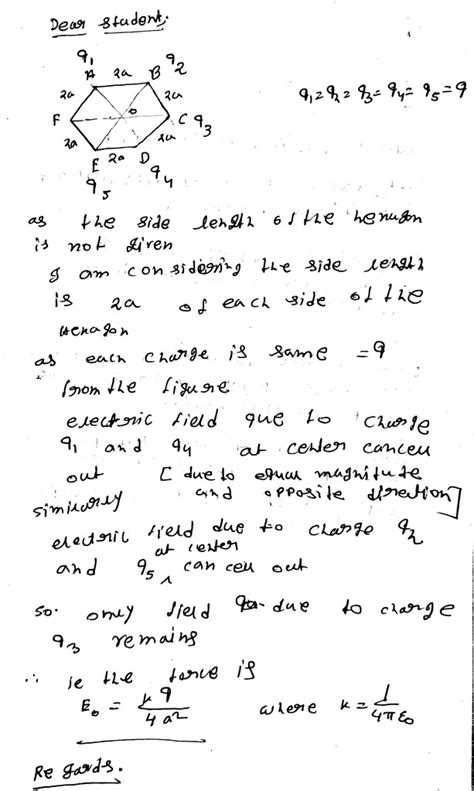 Dear Student,
q1 q2
A 2a B
2a 2a
F O C q3
2a 2a
E 2a D
q5 q4
q1 = q2 = q3 = q4 = q5 = q
as the side length of the hexagon
is not given
I am considering the side length
is 2a of each side of the
Hexagon
as each charge is same = q
from the figure
electric field due to charge
q1 and q4 at center cancell
out [due to equal magnitute
and opposite direction]
similarly
electric field due to charge q2
at center
and q5 can cell out
so. only field due to charge
q3 remains
∴ ie the force is
E0 = Kq / 4a² where K = 1 / 4πε0
Regards.